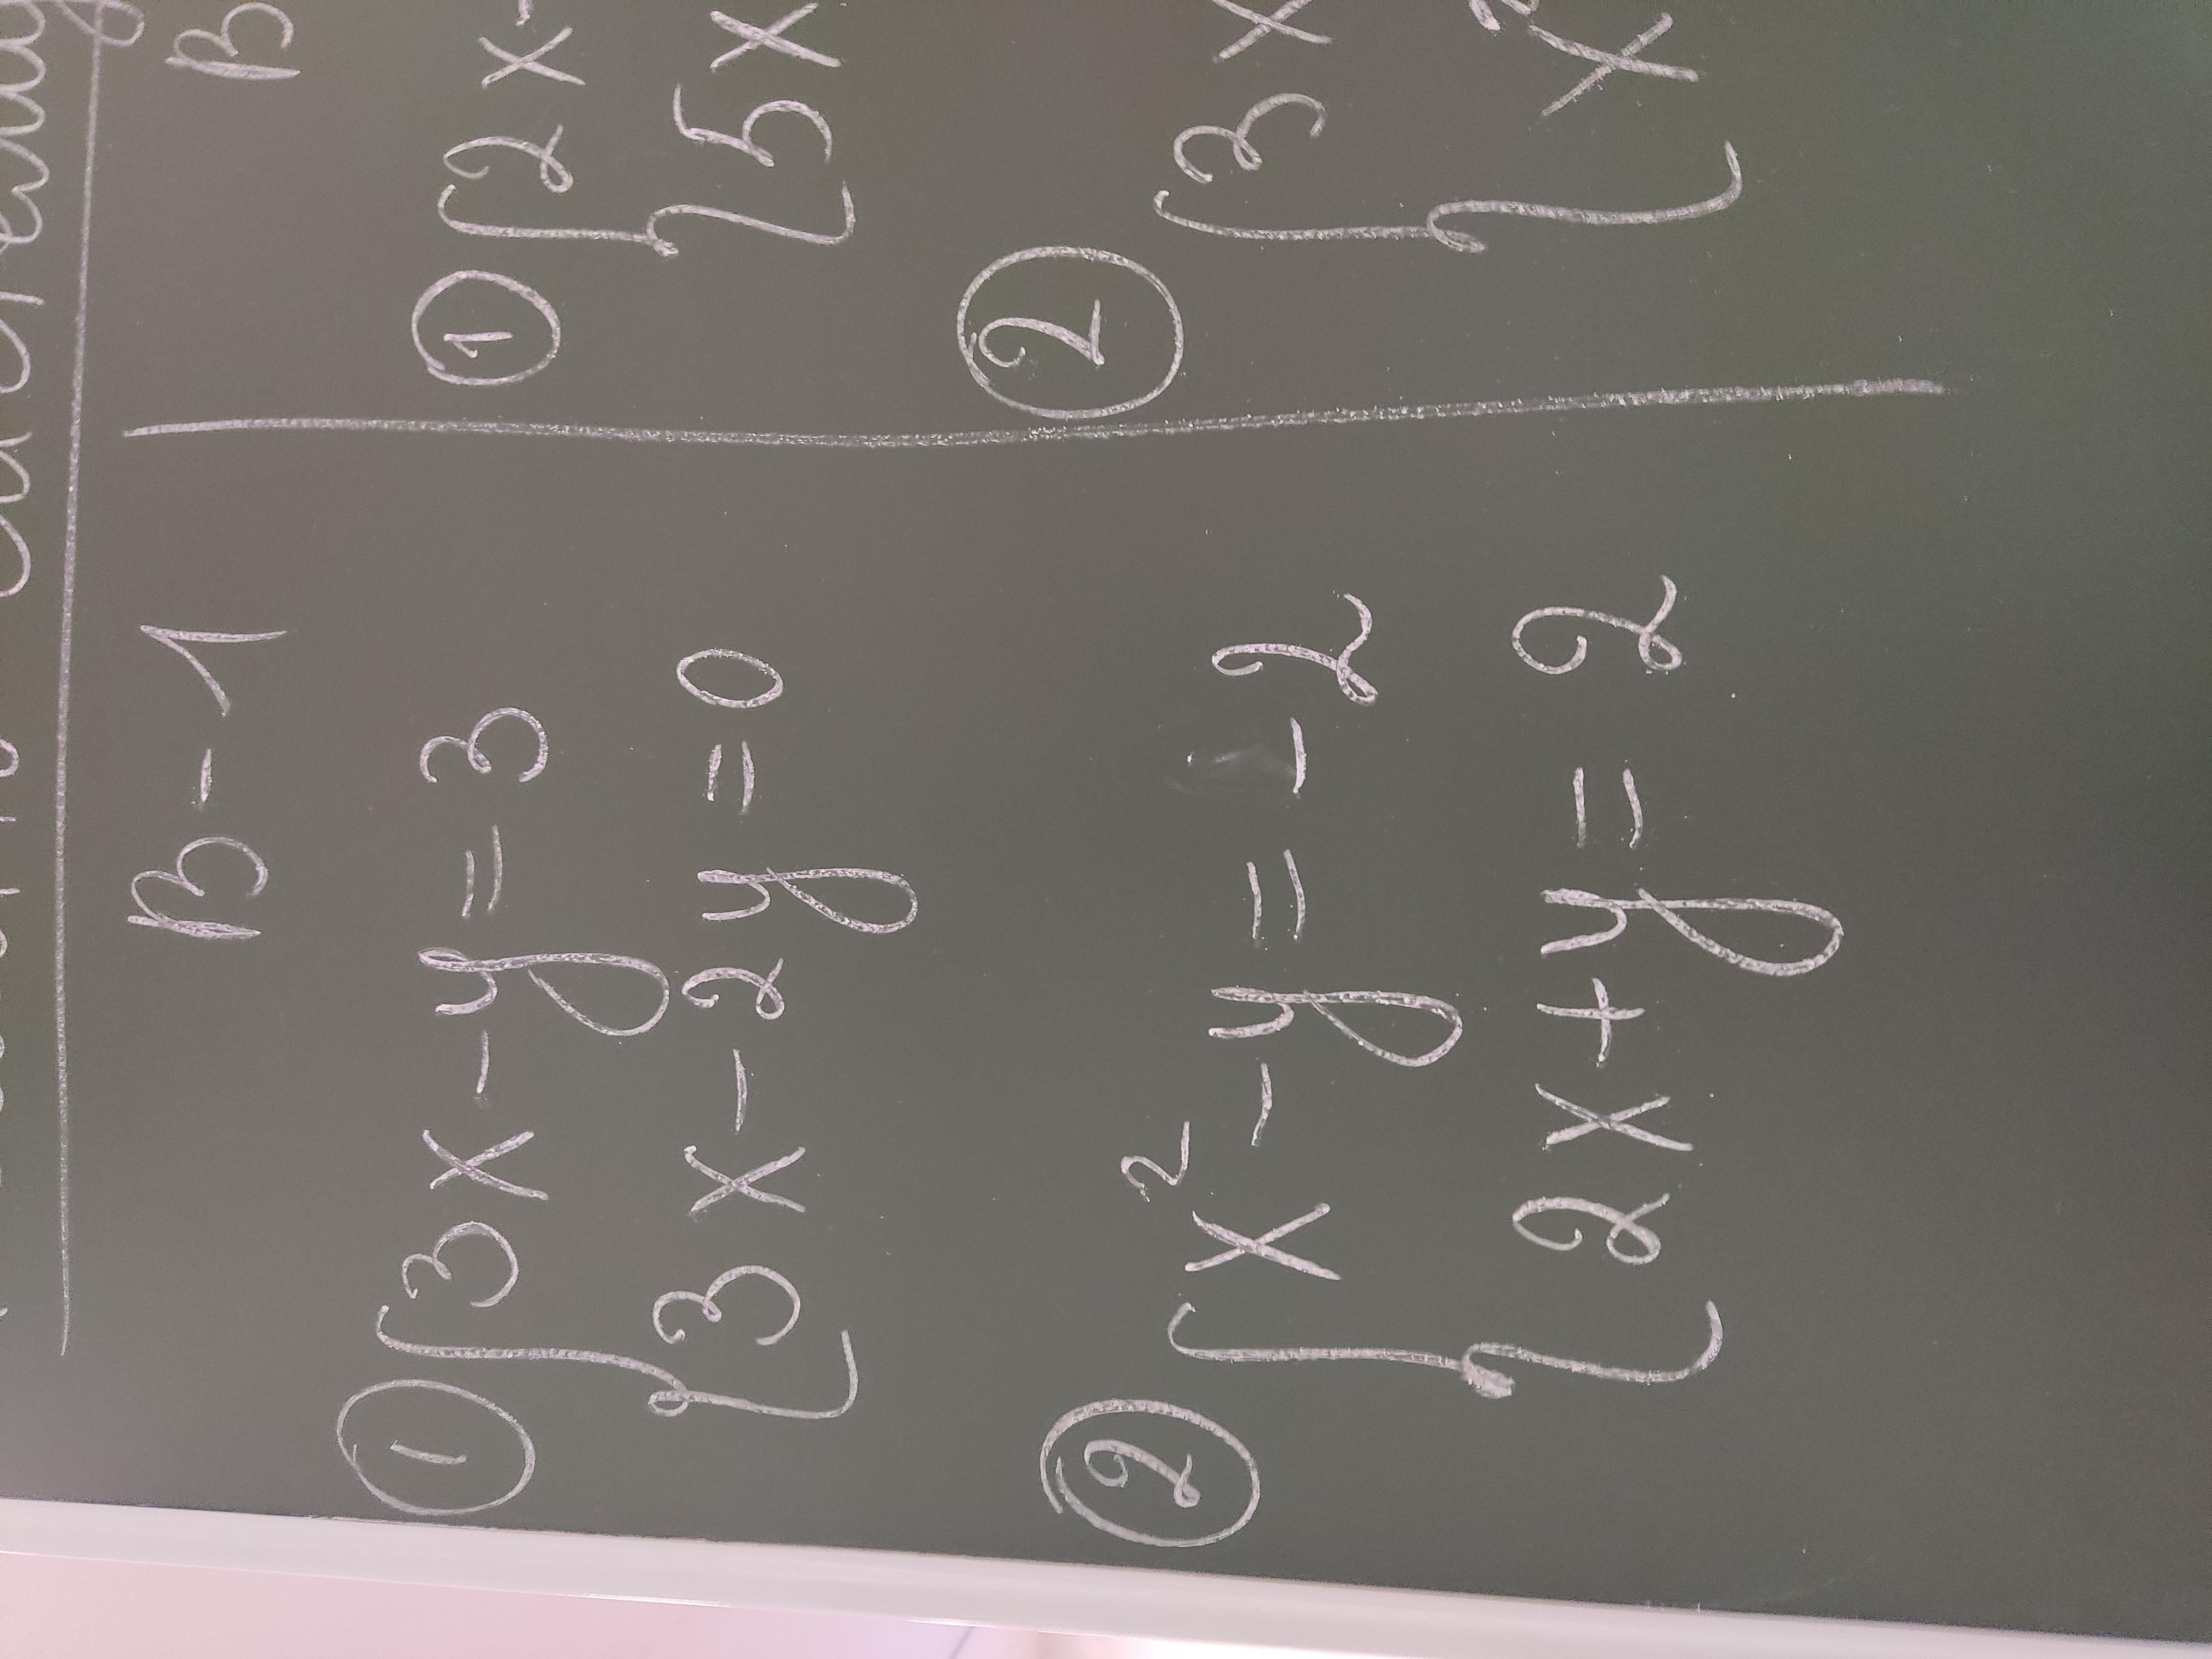 В-1
① { 3x-y=3
3x-2y=0
② { x²-y=-2
2x+y=2
В
① { 2x-
5x
② { 3x
x